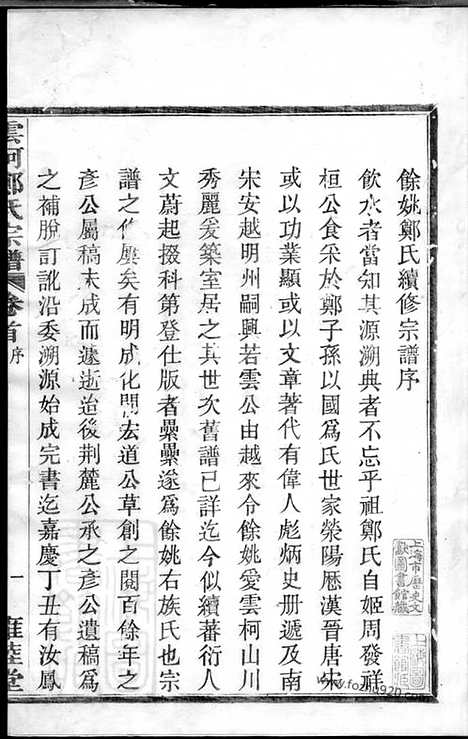 餘姚鄭氏續修宗譜序
飲水者當知其源溯典者不忘乎祖鄭氏自姬周發祥
桓公食采於鄭子孫以國爲氏世家滎陽歷漢晉唐宋
或以功業顯或以文章著代有偉人彪炳史册遞及南
宋安越明州嗣興若雲公由越來令餘姚愛雲柯山川
秀麗爰築室居之其世次舊譜已詳迄今似續蕃衍人
文蔚起掇科第登仕版者纍纍遂爲餘姚右族氏也宗
譜之作屢矣有明成化間宏道公草創之閱百餘年之
彥公屬稿未成而遽逝迨後荆麓公承之彥公遺稿爲
之補脫訂訛沿委溯源始成完書迄嘉慶丁丑有汝鳳
雲柯鄭氏宗譜 卷首 序
一 雍睦堂
上海市歷史文獻圖書館藏
www.fozhu920.com